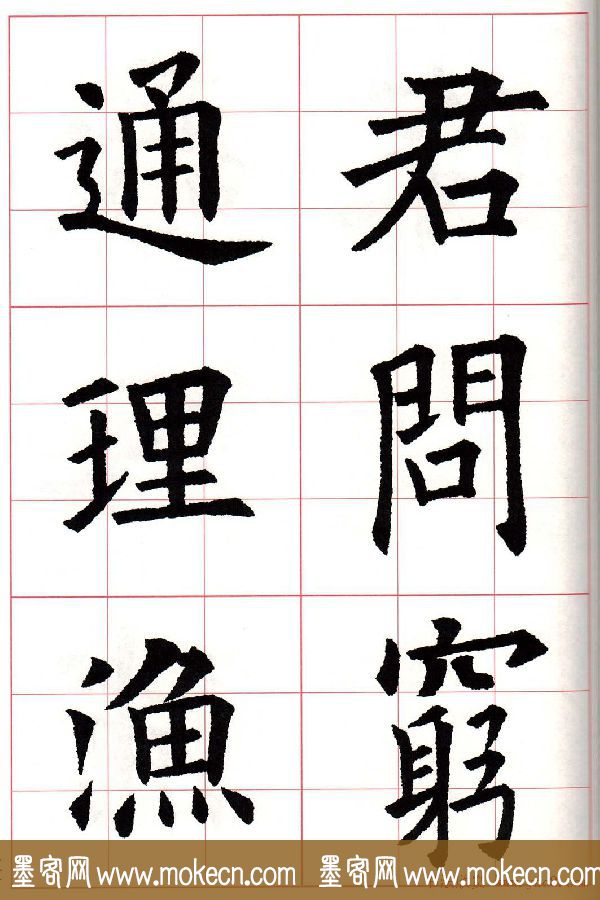 君問窮
通理漁
墨客网 www.mokecn.com 墨客网 www.mokecn.com